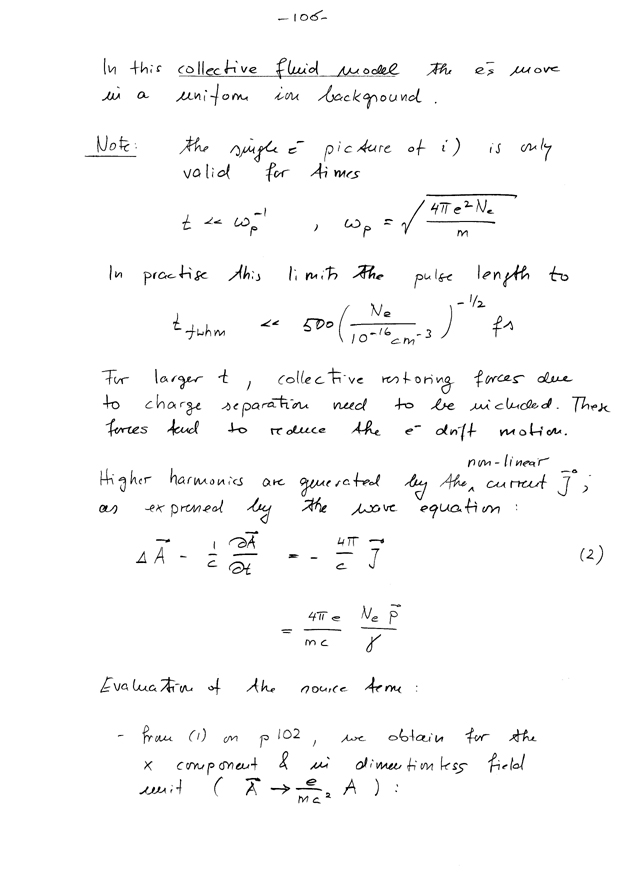 -106-
In this collective fluid model the e⁻s move
in a uniform ion background.
Note: the single e⁻ picture of i) is only
valid for times
t << ωp⁻¹ , ωp = √(4πe²Ne / m)
In practise this limits the pulse length to
t fwhm << 500 (Ne / 10⁻¹⁶ cm⁻³)^(-1/2) fs
For larger t, collective restoring forces due
to charge separation need to be included. These
forces tend to reduce the e⁻ drift motion.
Higher harmonics are generated by the non-linear current J⃗,
as expressed by the wave equation :
Δ A⃗ - (1/c) ∂A⃗/∂t = - (4π/c) J⃗ (2)
= (4πe / mc) (Ne p⃗ / γ)
Evaluation of the source term :
- from (1) on p102, we obtain for the
x component & in dimensionless field
unit ( A⃗ → (e / mc²) A ) :